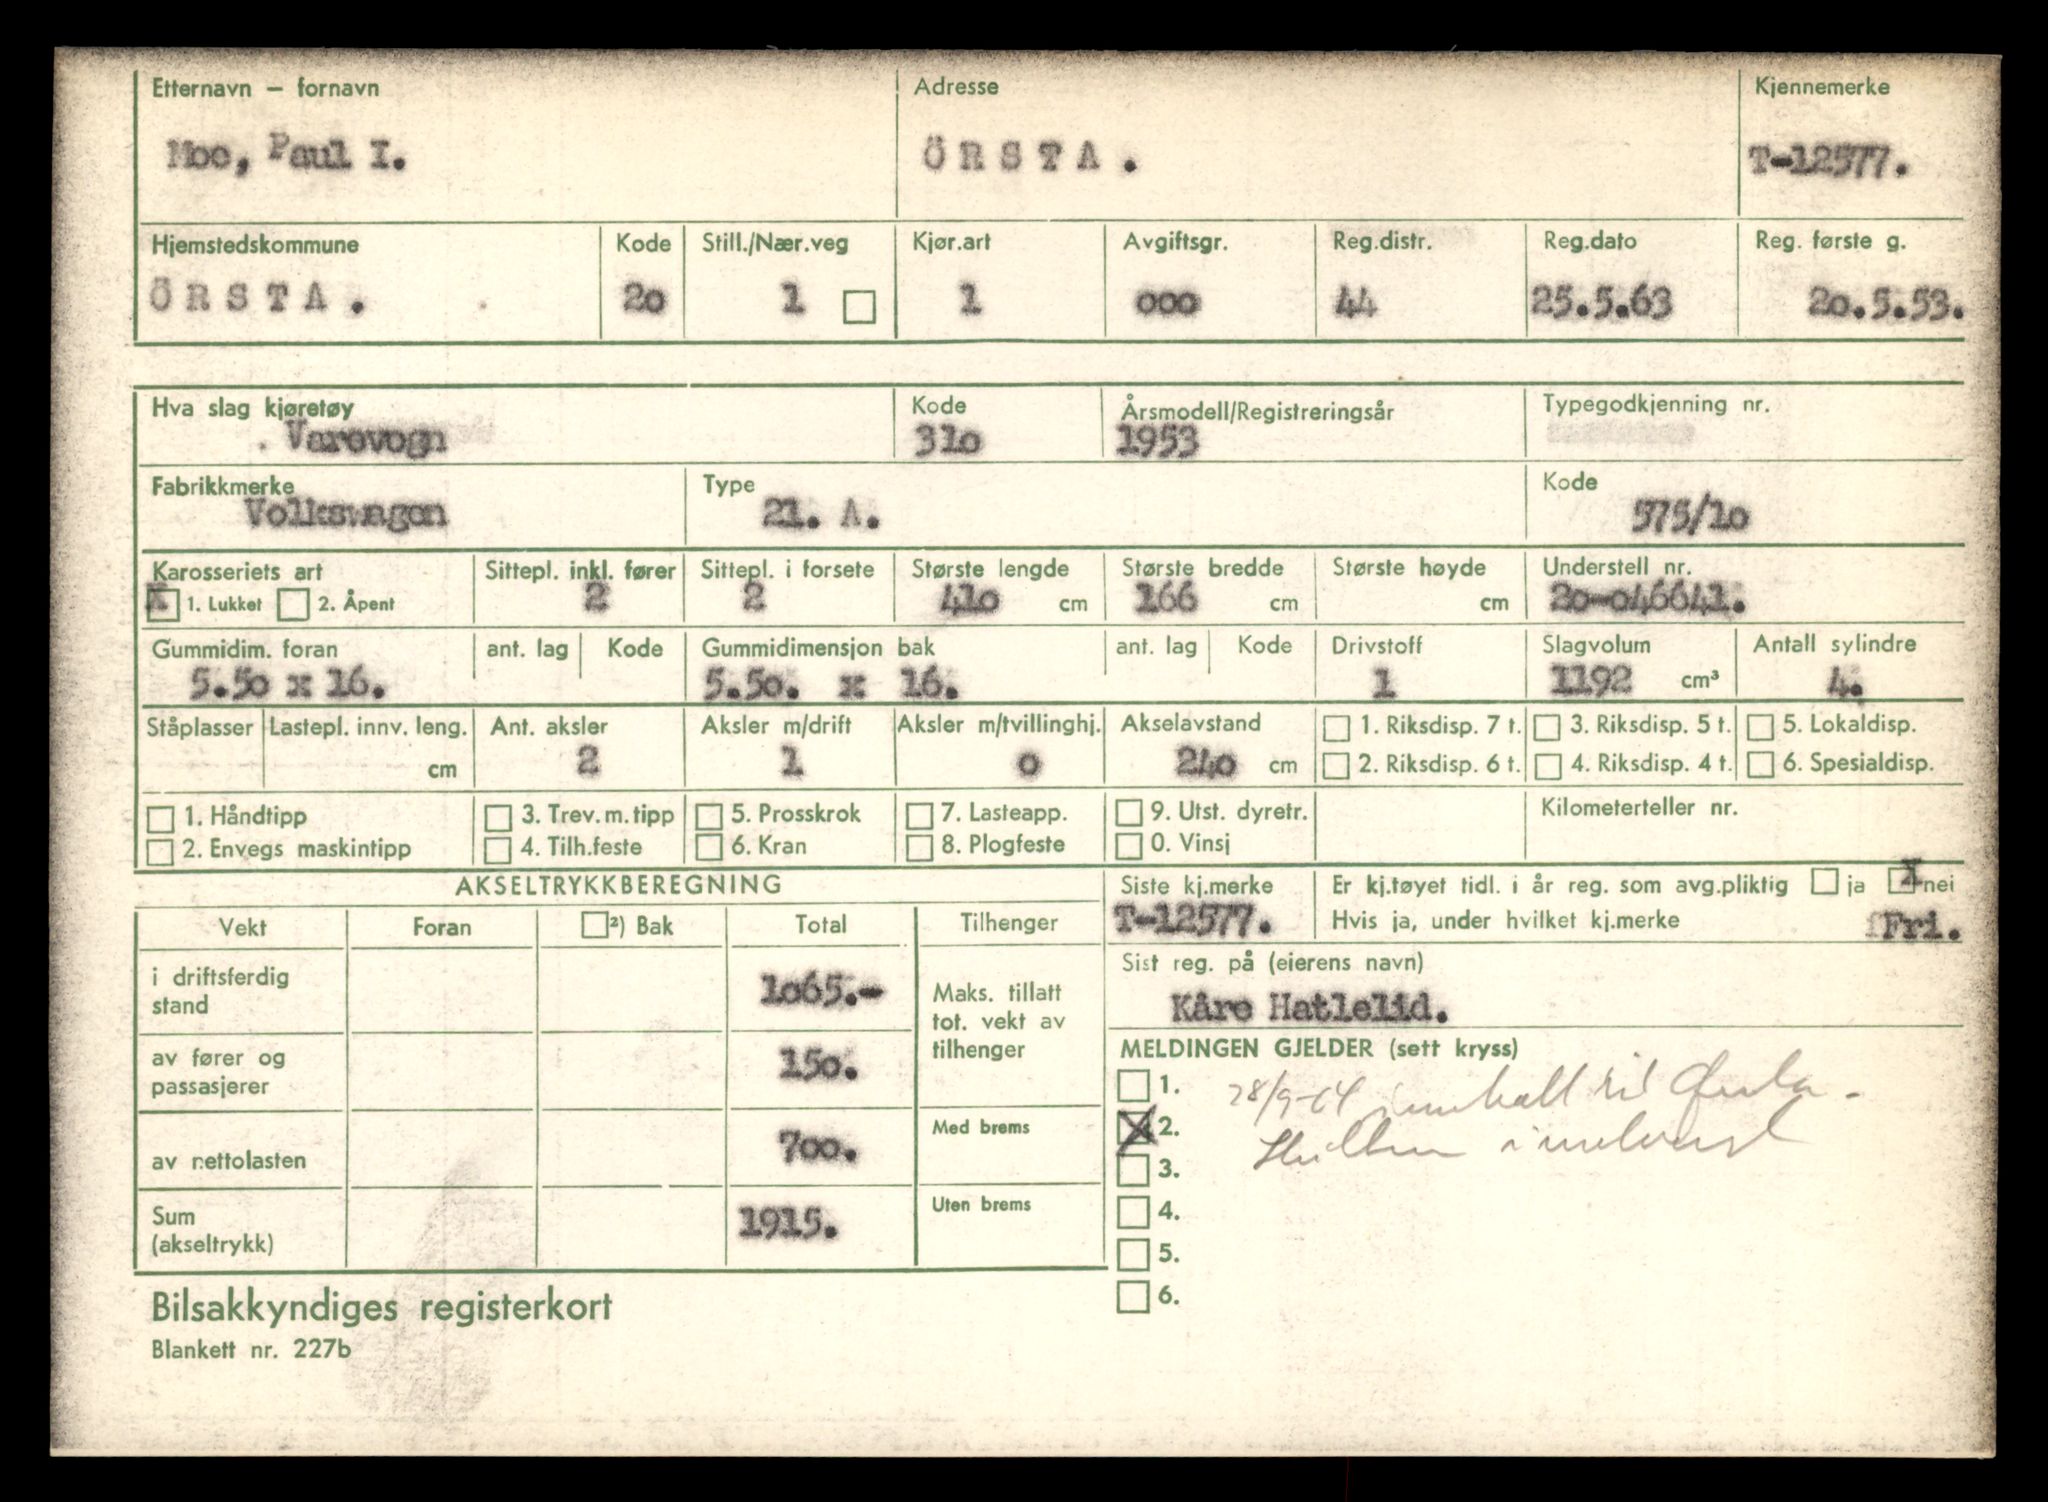 Etternavn – fornavn Adresse Kjennemerke
Moe, Paul I. ÖRSTA. T-12577.
Hjemstedskommune Kode Still./Nær.veg Kjør.art Avgiftsgr. Reg.distr. Reg.dato Reg. første g.
ÖRSTA. 2o 1 1 ooo 44 25.5.63 2o.5.53.
Hva slag kjøretøy Kode Årsmodell/Registreringsår Typegodkjenning nr.
Varevogn 31o 1953
Fabrikkmerke Type Kode
Volkswagen 21. A. 575/1o
Karosseriets art Sittepl. inkl. fører Sittepl. i forsete Største lengde Største bredde Største høyde Understell nr.
X 1. Lukket 2. Åpent 2 2 41o cm 166 cm cm 2o-o46641.
Gummidim. foran ant. lag Kode Gummidimensjon bak ant. lag Kode Drivstoff Slagvolum Antall sylindre
5.5o x 16. 5.5o. x 16. 1 1192 cm³ 4.
Ståplasser Lastepl. innv. leng. Ant. aksler Aksler m/drift Aksler m/tvillinghj. Akselavstand 1. Riksdisp. 7 t. 3. Riksdisp. 5 t. 5. Lokaldisp.
cm 2 1 o 24o cm 2. Riksdisp. 6 t. 4. Riksdisp. 4 t. 6. Spesialdisp.
1. Håndtipp 3. Trev. m. tipp 5. Prosskrok 7. Lasteapp. 9. Utst. dyretr. Kilometerteller nr.
2. Envegs maskintipp 4. Tilh.feste 6. Kran 8. Plogfeste 0. Vinsj
AKSELTRYKKBEREGNING
Vekt Foran ²) Bak Total Tilhenger
i driftsferdig stand 1o65.-
Maks. tillatt tot. vekt av tilhenger
av fører og passasjerer 15o.
av nettolasten 7oo.
Med brems
Sum (akseltrykk) 1915.
Uten brems
Siste kj.merke Er kj.tøyet tidl. i år reg. som avg.pliktig ja X nei
T-12577. Hvis ja, under hvilket kj.merke Fri.
Sist reg. på (eierens navn)
Kåre Hatlelid.
MELDINGEN GJELDER (sett kryss)
1. 28/9-64 til Ørsta -
X 2.
3.
4.
5.
6.
Bilsakkyndiges registerkort
Blankett nr. 227b